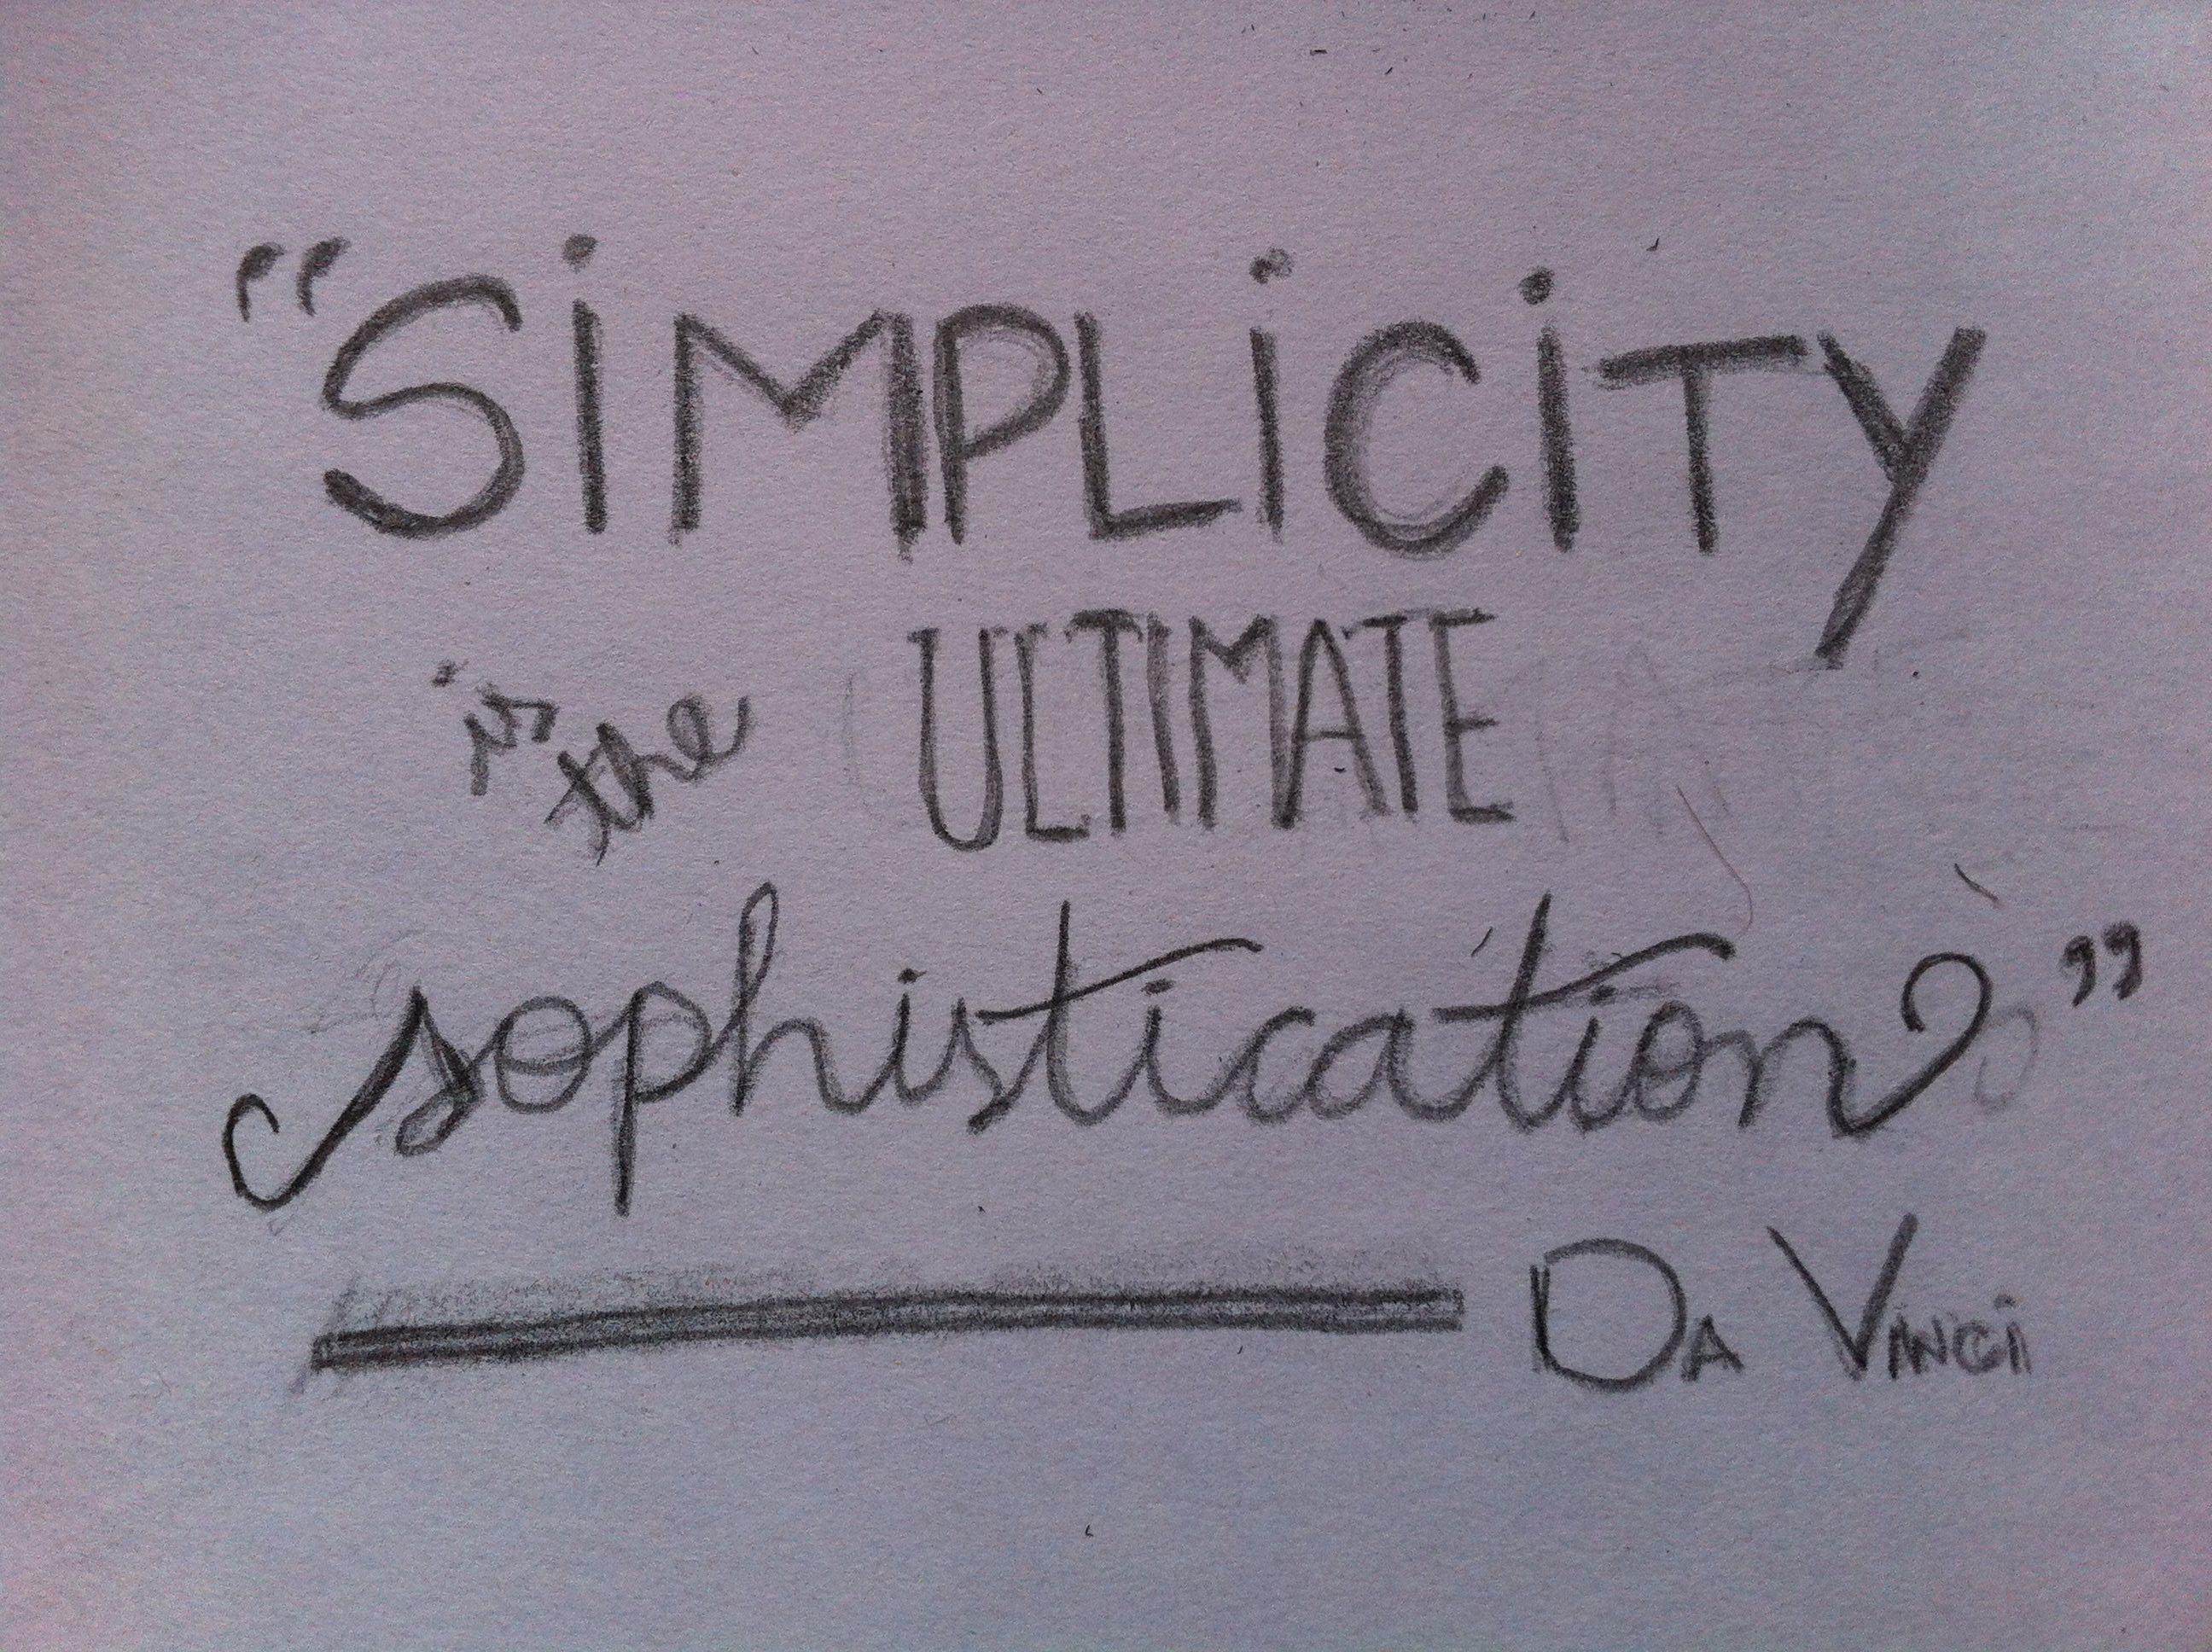 “SiMPLiCiTY
is the ULTIMATE
sophistication”
DA VINCi